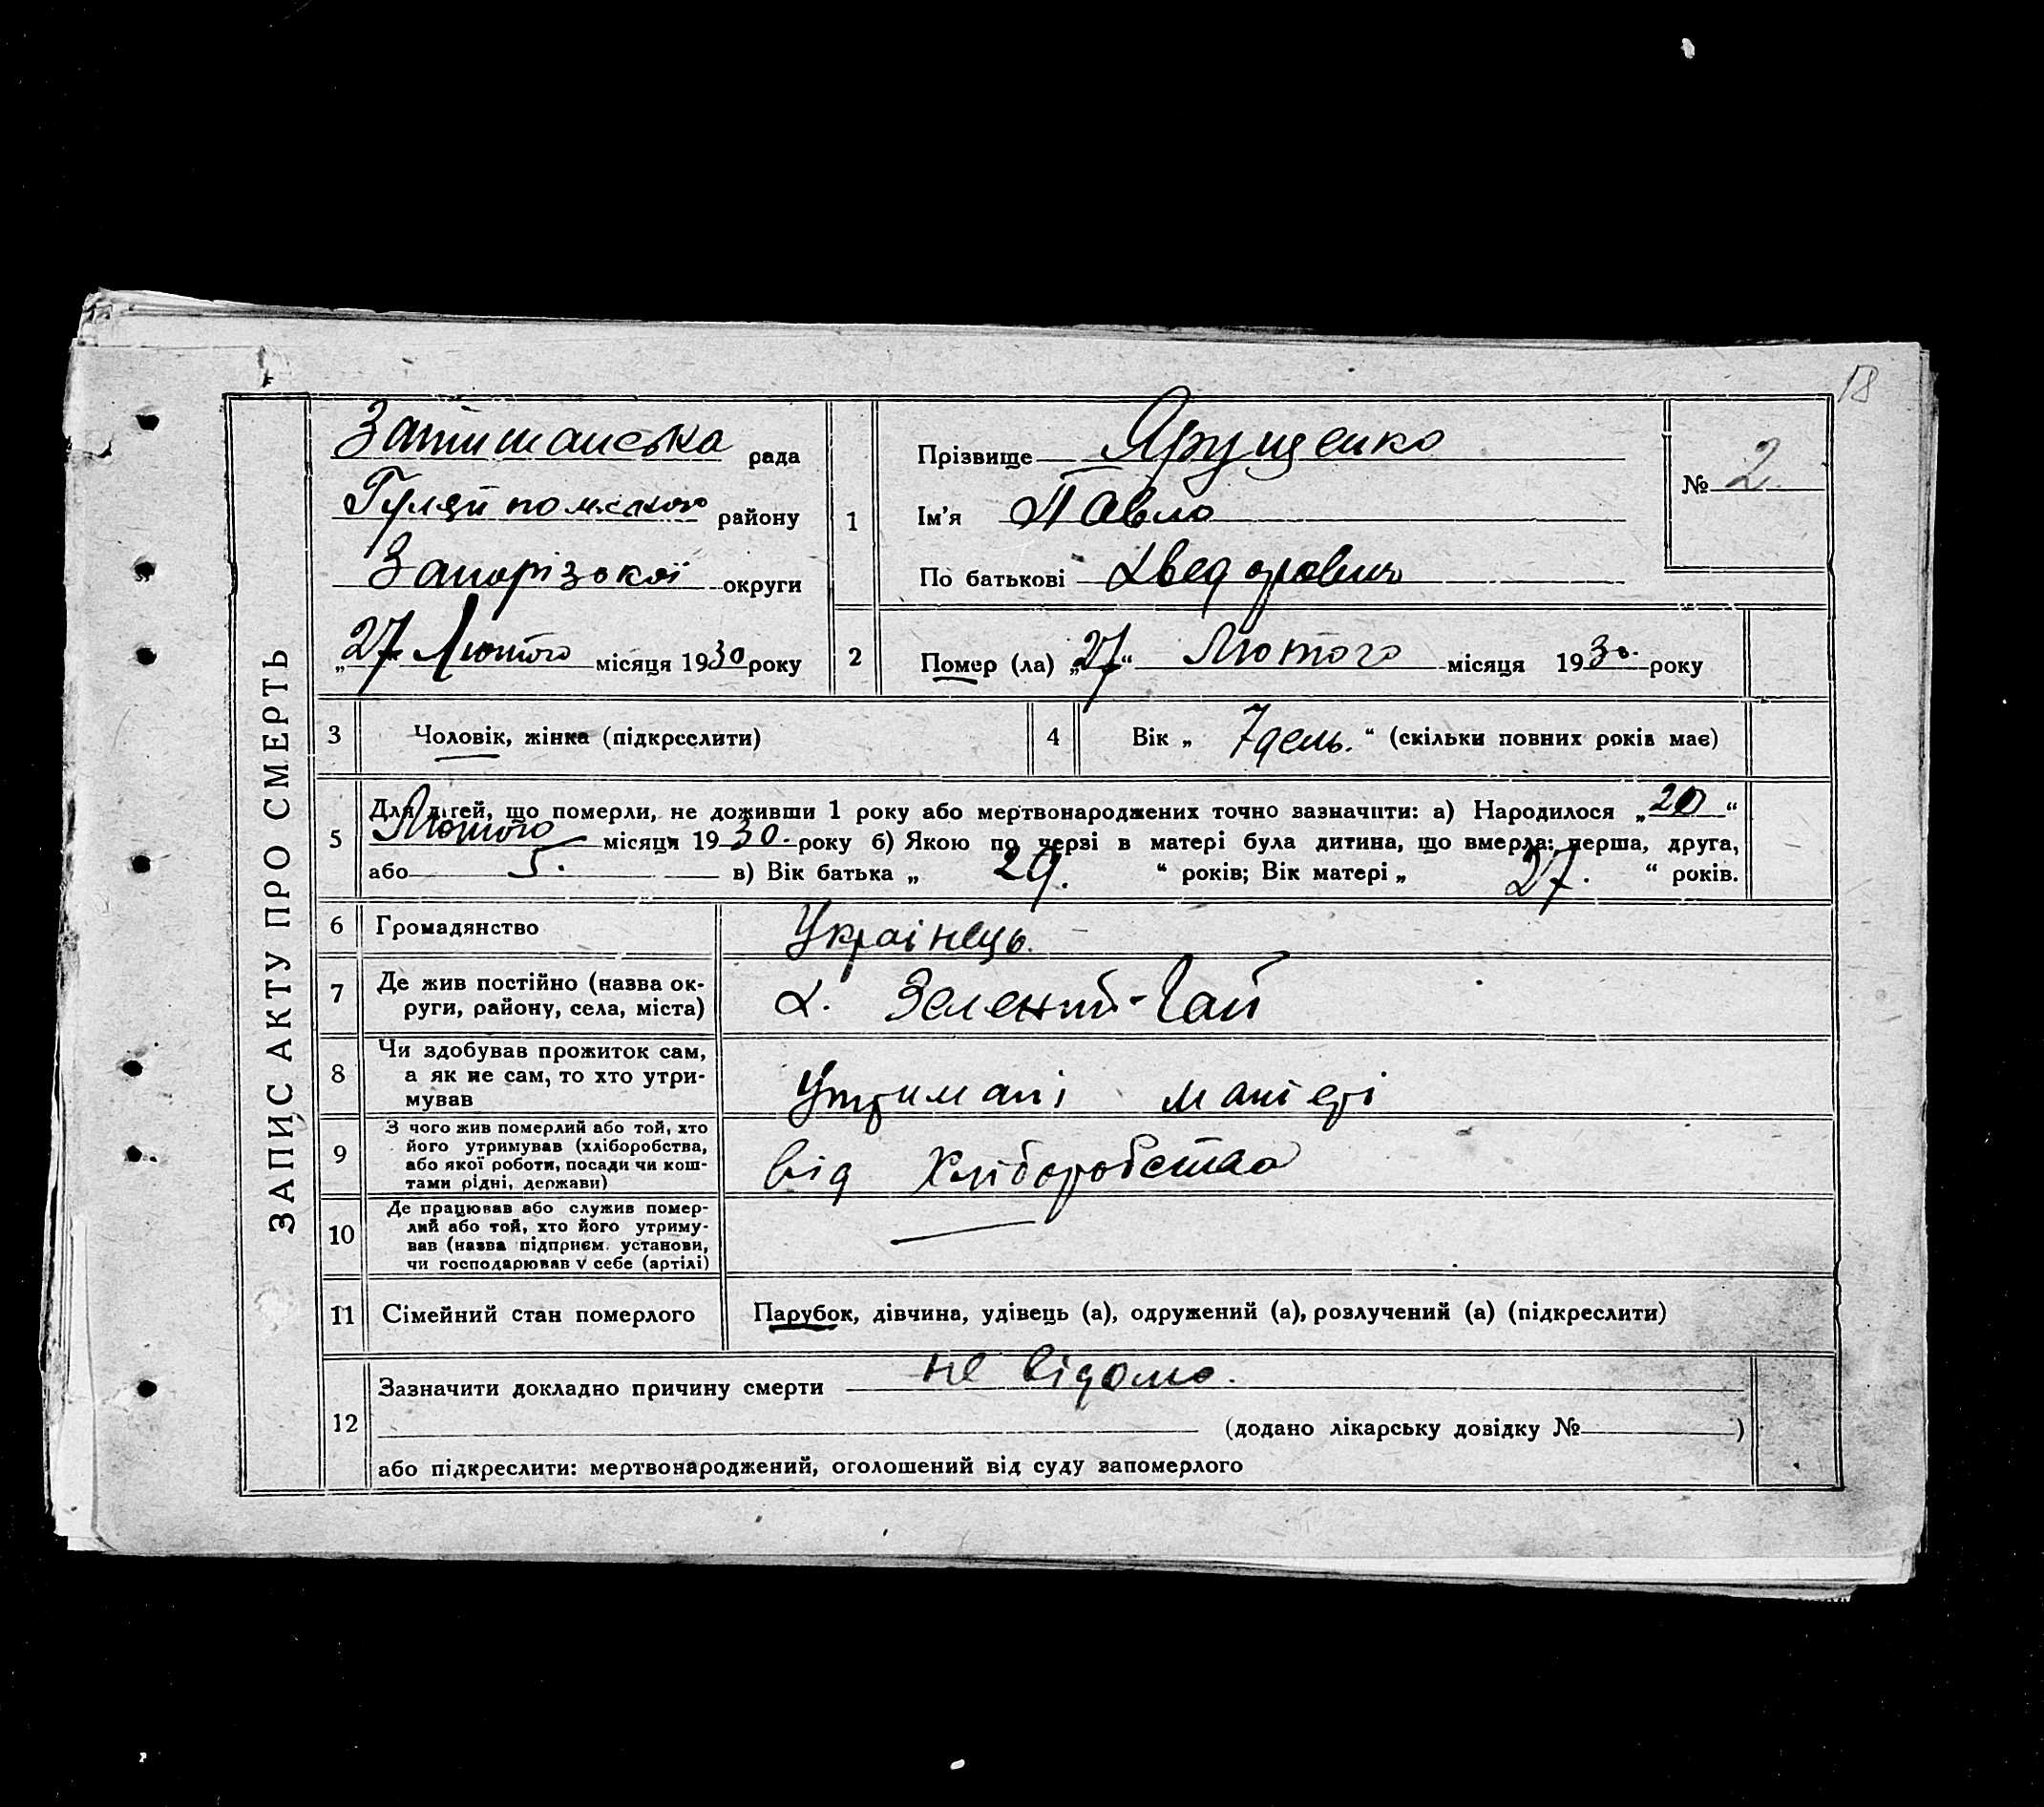 18
ЗАПИС АКТУ ПРО СМЕРТЬ
Затишанська рада
Гуляйпольського району
Запорізької округи
„27 Лютого місяця 1930 року
1
Прізвище Ярущенко
Ім'я Павло
По батькові
№ 2
2
Помер (ла) „27“ Лютого місяця 1930. року
3
Чоловік, жінка (підкреслити)
4
Вік „ 7 день. “ (скільки повних років має)
5
Для дітей, що померли, не доживши 1 року або мертвонароджених точно зазначити: а) Народилося „20“
Лютого місяця 1930. року б) Якою по черзі в матері була дитина, що вмерла: перша, друга,
або 5. в) Вік батька „ 29. “ років; Вік матері „ 27. “ років.
6
Громадянство
Украінець.
7
Де жив постійно (назва ок-
руги, району, села, міста)
с. Зелений-Гай
8
Чи здобував прожиток сам,
а як не сам, то хто утри-
мував
Утримані матері
9
З чого жив померлий або той, хто
його утримував (хліборобства,
або якої роботи, посади чи кош-
тами рідні, держави)
від Хліборобства
10
Де працював або служив помер-
лий або той, хто його утриму-
вав (назва підприєм. установи,
чи господарював у себе (артілі)
11
Сімейний стан померлого
Парубок, дівчина, удівець (а), одружений (а), розлучений (а) (підкреслити)
12
Зазначити докладно причину смерти не відомо.
(додано лікарську довідку № )
або підкреслити: мертвонароджений, оголошений від суду запомерлого